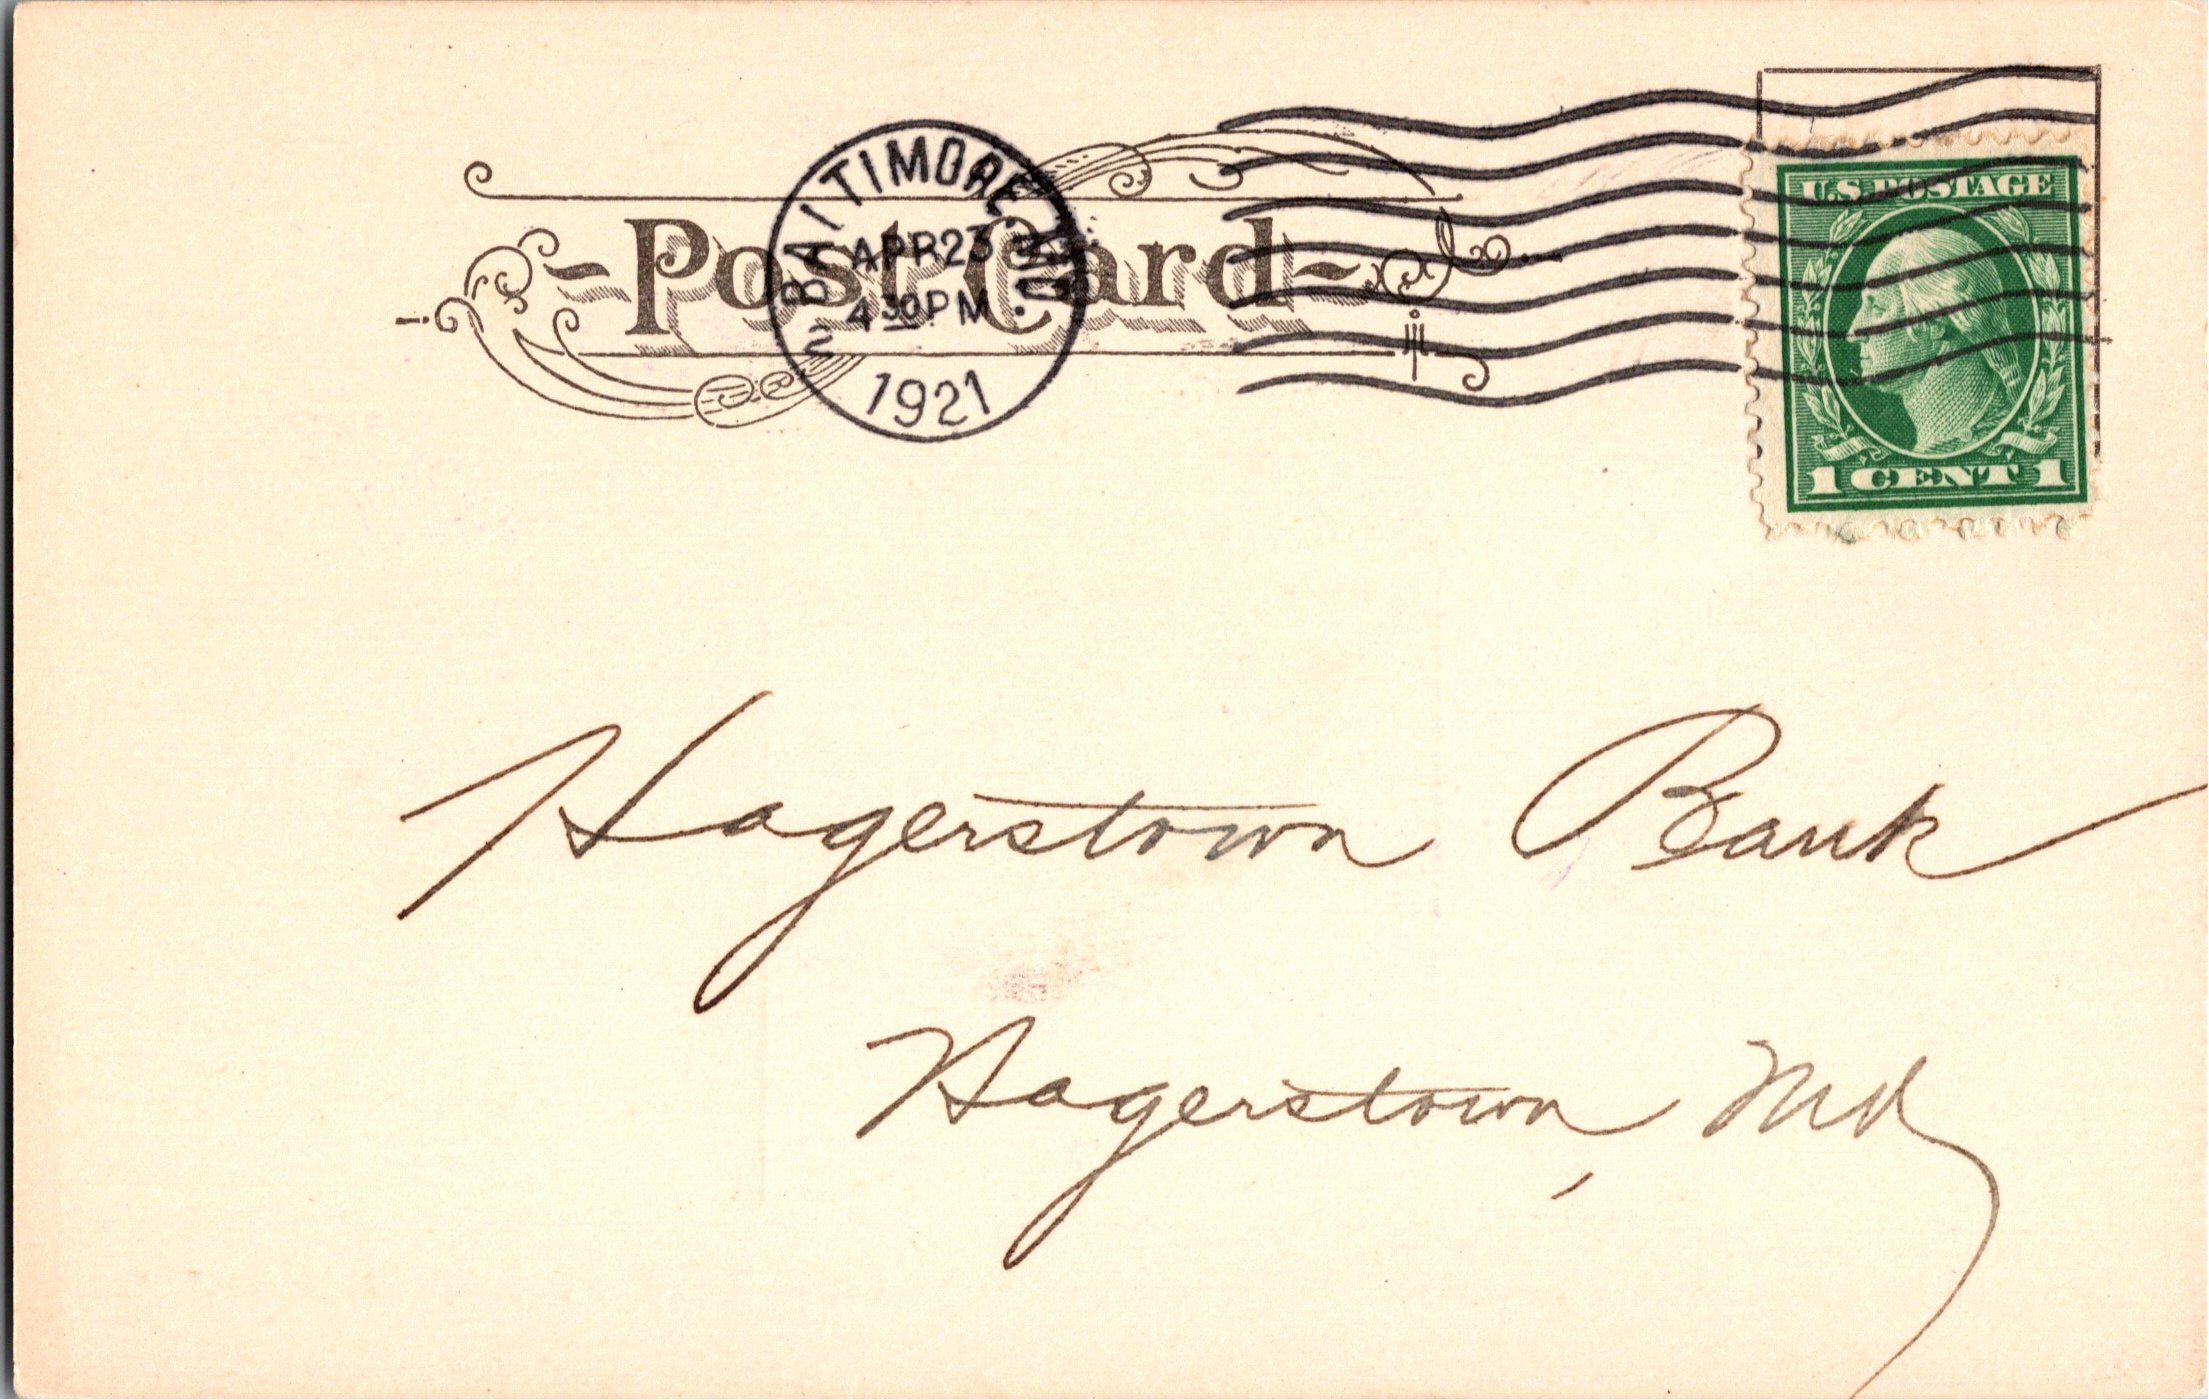 BALTIMORE, MD. 2
APR 23
4 30 PM
1921
-Post Card-
U.S. POSTAGE
1 CENT 1
Hagerstown Bank
Hagerstown, Md